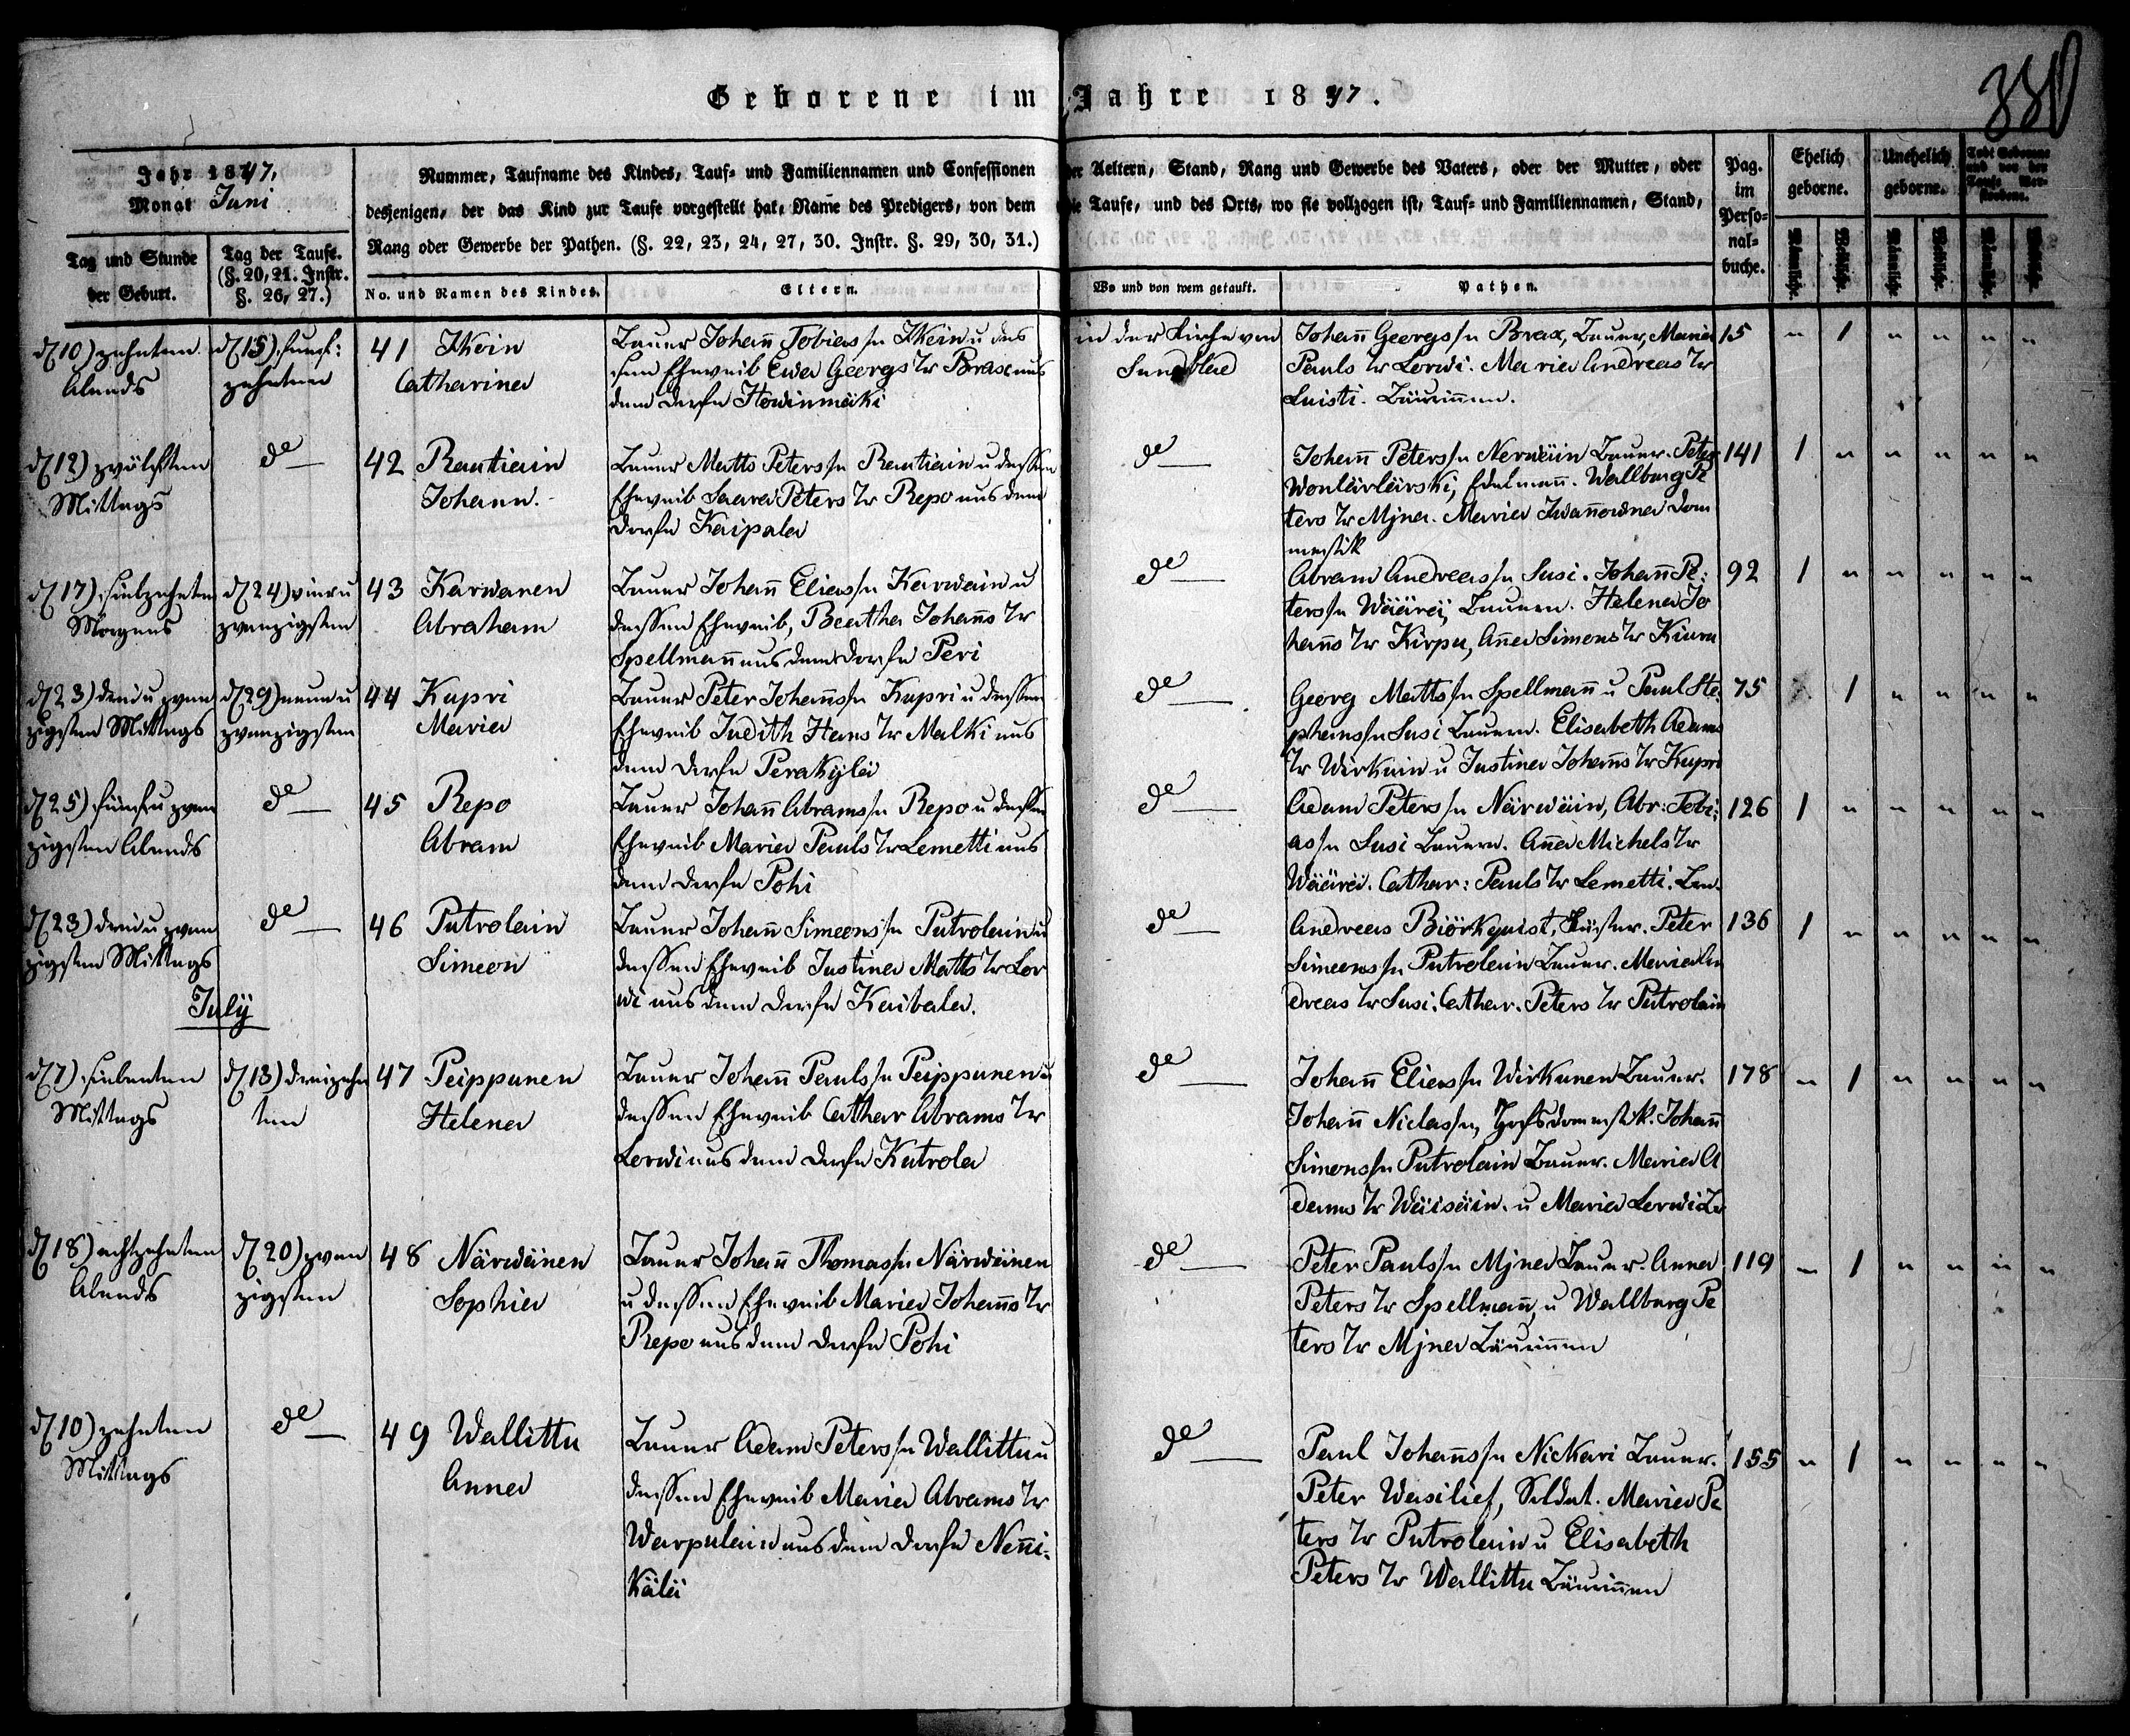 380
Geborene im Jahre 1847.
Jahr 1847,
Monat Juni
Nummer, Taufname des Kindes, Tauf- und Familiennamen und Confessionen der Aeltern, Stand, Rang und Gewerbe des Vaters, oder der Mutter, oder
desjenigen, der das Kind zur Taufe vorgestellt hat, Name des Predigers, von dem die Taufe, und des Orts, wo sie vollzogen ist, Tauf- und Familiennamen, Stand,
Rang oder Gewerbe der Pathen. (§. 22, 23, 24, 27, 30. Instr. §. 29, 30, 31.)
Tag und Stunde
der Geburt.
Tag der Taufe.
(§. 20, 21. Instr.
§. 26, 27.)
No. und Namen des Kindes.
Eltern.
Wo und von wem getauft.
Pathen.
Pag.
im
Perso-
nal-
buche.
Ehelich
geborne.
Unehelich
geborne.
Todt Geborene
und vor der
Taufe Ver-
storbene.
Männliche.
Weibliche.
Männliche.
Weibliche.
Männliche.
Weibliche.
d. 10) zehnten
Abends
d. 15) funf-
zehnten
41 Ihein
Catharina
Bauer Johan̄ Tobias sn Ihein u des
sen Eheweib Ewa Georgs Tr Brax aus
dem Dorfe Howinmäki
in der Kirche von
Johan̄ Georgs sn Brax, Bauer, Maria
Pauls Tr Lorwi. Maria Andreas Tr
Luisti. Bäuerin̄en.
15 " 1 " " " "
d. 12) zwölften
Mittags
de
42 Rautiain
Johann.
Bauer Matts Peters sn Rautiain u dessen
Eheweib Saara Peters Tr Repo aus dem
Dorfe Kaipala
de
Johan̄ Peters sn Nerwäin Bauer. Peter
Wonlärlärski, Edelman̄. Wallburg Pe
ters Tr Mjna. Maria Iwan̄owna Dom
mestik
141 1 " " " " "
d. 17) siebzehnten
Morgens
d. 24) vier u
zwanzigsten
43 Karwanen
Abraham
Bauer Johan̄ Elias sn Karwain u
dessen Eheweib, Beatha Johan̄s Tr
Spellman̄ aus dem Dorfe Peri
de
Abram Andreas sn Susi. Johan̄ Pe:
ters sn Wäärei, Bauern. Helena Jo
han̄s Tr Kirpu, An̄a Simons Tr Kiuru
92 1 " " " " "
d. 23) drei u zwan
zigsten Mittags
d. 29) neun u
zwanzigsten
44 Kupri
Maria
Bauer Peter Johan̄s sn Kupri u dessen
Eheweib Judith Hans Tr Malki aus
dem Dorfe Peräkylä
de
Georg Matts sn Spellman̄ u Paul Ste
phans sn Susi Bauern. Elisabeth Adams
Tr Wirkuin u Justina Johan̄s Tr Kupri
75 1 " " " "
d. 25) fünf u zwan
zigsten Abends
de
45 Repo
Abram
Bauer Johan̄ Abrams sn Repo u dessen
Eheweib Maria Pauls Tr Lemetti aus
dem Dorfe Pohi
de
Adam Peters sn Närwäin, Abr: Tobi:
as sn Susi Bauern. An̄a Michels Tr
Wäärei. Cathar: Pauls Tr Lemetti. Bau-
126 1 " " " " "
d. 23) drei u zwan
zigsten Mittags
de
46 Putrolain
Simeon
Bauer Johan̄ Simeons sn Putrolain u
dessen Eheweib Justina Matts Tr Lor
wi aus dem Dorfe Kaibala.
de
Andreas Biörkquist, Küster. Peter
Simeons sn Putrolain Bauer. Maria An
dreas Tr Susi. Cathar. Peters Tr Putrolain
136 1 " " " " "
July
d. 7) siebenten
Mittags
d. 13) dreizehn
ten
47 Peippunen
Helena
Bauer Johan̄ Pauls sn Peippunen u
dessen Eheweib Cathar Abrams Tr
Lorwi aus dem Dorfe Katrola
de
Johan̄ Elias sn Wirkunen Bauer.
Johan̄ Niclas sn, Hofsdomestik. Johan̄
Simons sn Putrolain Bauer. Maria A
dams Tr Wäisäin. u Maria Lorwi Br
178 " 1 " " " "
d. 18) achtzehnten
Abends
d. 20) zwan
zigsten
48 Närwäinen
Sophia
Bauer Johan̄ Thomas sn Närwäinen
u dessen Eheweib Maria Johan̄s Tr
Repo aus dem Dorfe Pohi
de
Peter Pauls sn Mjna Bauer. Anna
Peters Tr Spellman̄, u Wallburg Pe
ters Tr Mjna Bäuerin̄en
119 " 1 " " " "
d. 10) zehnten
Mittags
de
49 Wallittu
Anna
Bauer Adam Peters sn Wallittu u
dessen Eheweib Maria Abrams Tr
Warpulain aus dem Dorfe Nen̄i-
källä
de
Paul Johan̄s sn Nickari Bauer.
Peter Wasilief, Soldat. Maria Pe
ters Tr Putrolain u Elisabeth
Peters Tr Wallittu Bäuerin̄en
155 " 1 " " " "